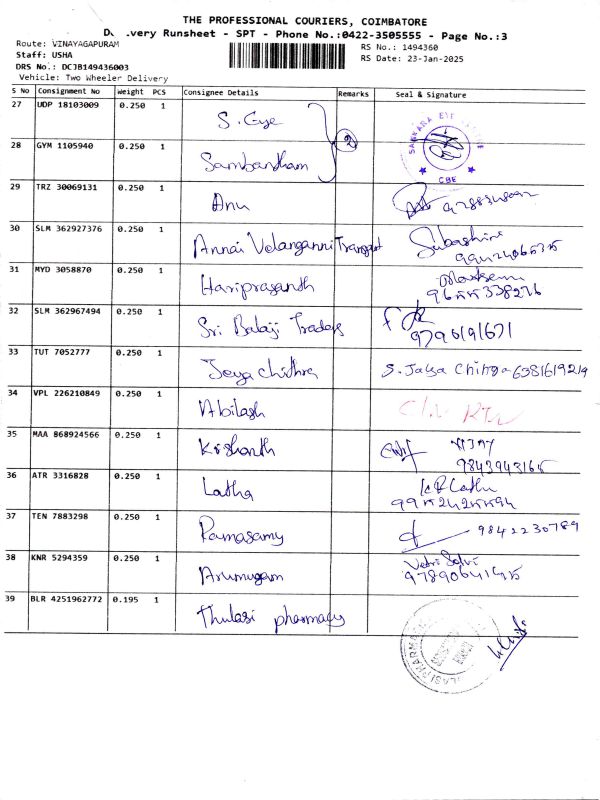 THE PROFESSIONAL COURIERS, COIMBATORE
Delivery Runsheet - SPT - Phone No.:0422-3505555 - Page No.:3
Route: VINAYAGAPURAM
RS No.: 1494360
Staff: USHA
RS Date: 23-Jan-2025
DRS No.: DCJB149436003
Vehicle: Two Wheeler Delivery
S No Consignment No Weight PCS Consignee Details Remarks Seal & Signature
27 UDP 18103009 0.250 1 S. Eye
SANKARA EYE CBE
28 GYM 1105940 0.250 1 Sambantham 2
29 TRZ 30069131 0.250 1 Anu
30 SLM 362927376 0.250 1 Annai Velanganni Transport Subashini
31 MYD 3058870 0.250 1 Hariprasanth
32 SLM 362967494 0.250 1 Sri Balaji Traders 9790191671
33 TUT 7052777 0.250 1 Jeyachithra S. Jaya Chitra 6381619219
34 VPL 226210849 0.250 1 Abilash
35 MAA 868924566 0.250 1 Krishanth VIJAY
36 ATR 3316828 0.250 1 Latha
37 TEN 7883298 0.250 1 Ramasamy 9842230789
38 KNR 5294359 0.250 1 Arumugam Vetri Selvi
39 BLR 4251962772 0.195 1 Thulasi pharmacy